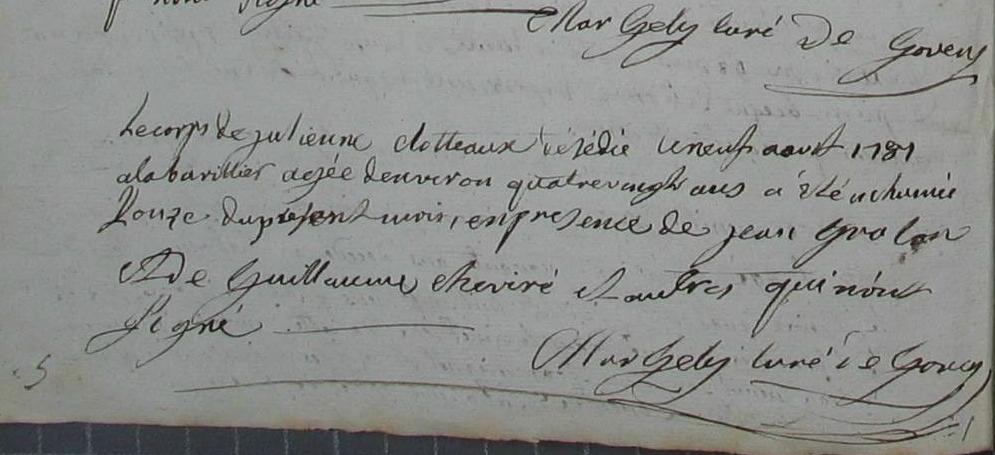 non signé
Mar Gely curé De Goven
Le corps de julienne clotteaux décédée le neuf aout 1781
a la barillier agée denviron quatrevingts ans a été inhumée
Lonze du present mois, en presence de jean gralan
Et de Guillaume cheviré et autres qui nont
signé
Mar Gely curé de Goven